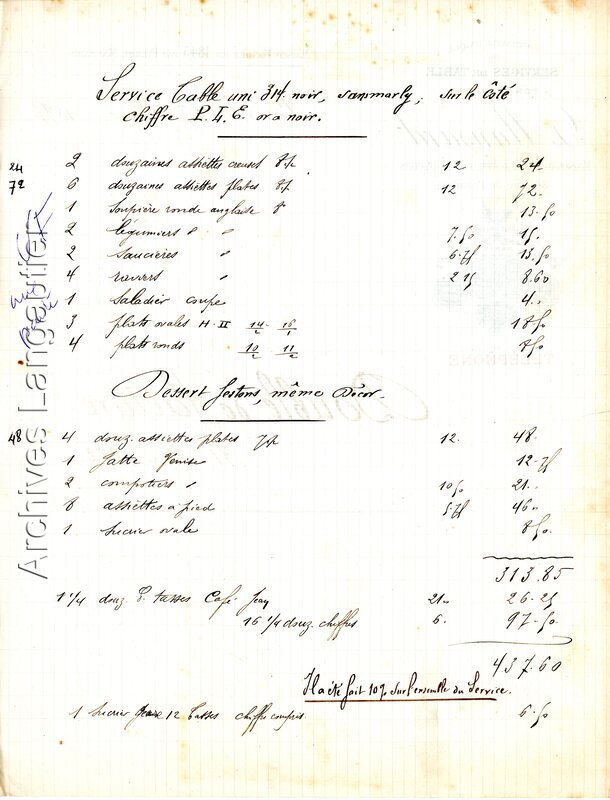 Service Table uni 314 noir, sammarly, sur le Côté
chiffre P. L. E. or a noir.
24 2 douzaines assiettes creuses 12 24.
72 6 douzaines assiettes plates 12 72.
1 Soupière ronde anglaise 13.50
2 légumiers " " 7.50 15.
2 Saucières " 6.75 13.50
4 raviers " 2 15 8.60
1 Saladier coupe 4..
3 plats ovales H. II 14 16 18 50
4 plats ronds 10 11 8 50
Dessert festons, même Décor.
48 4 douz. assiettes plates 12. 48.
1 Jatte Venise 12.75
2 compotiers " 10 50 21..
8 assiettes à pied 5.75 46..
1 Sucrier ovale 8 50
313.85
1 1/4 douz. tasses Café Jean 21.. 26.25
16 1/4 douz. chiffres 6. 97.50
437.60
Il a été fait 10% sur l'ensemble du Service.
1 Sucrier 12 tasses chiffre compris. 6.50
Archives Langautier
SERVICES DE TABLE
TÉLÉPHONE